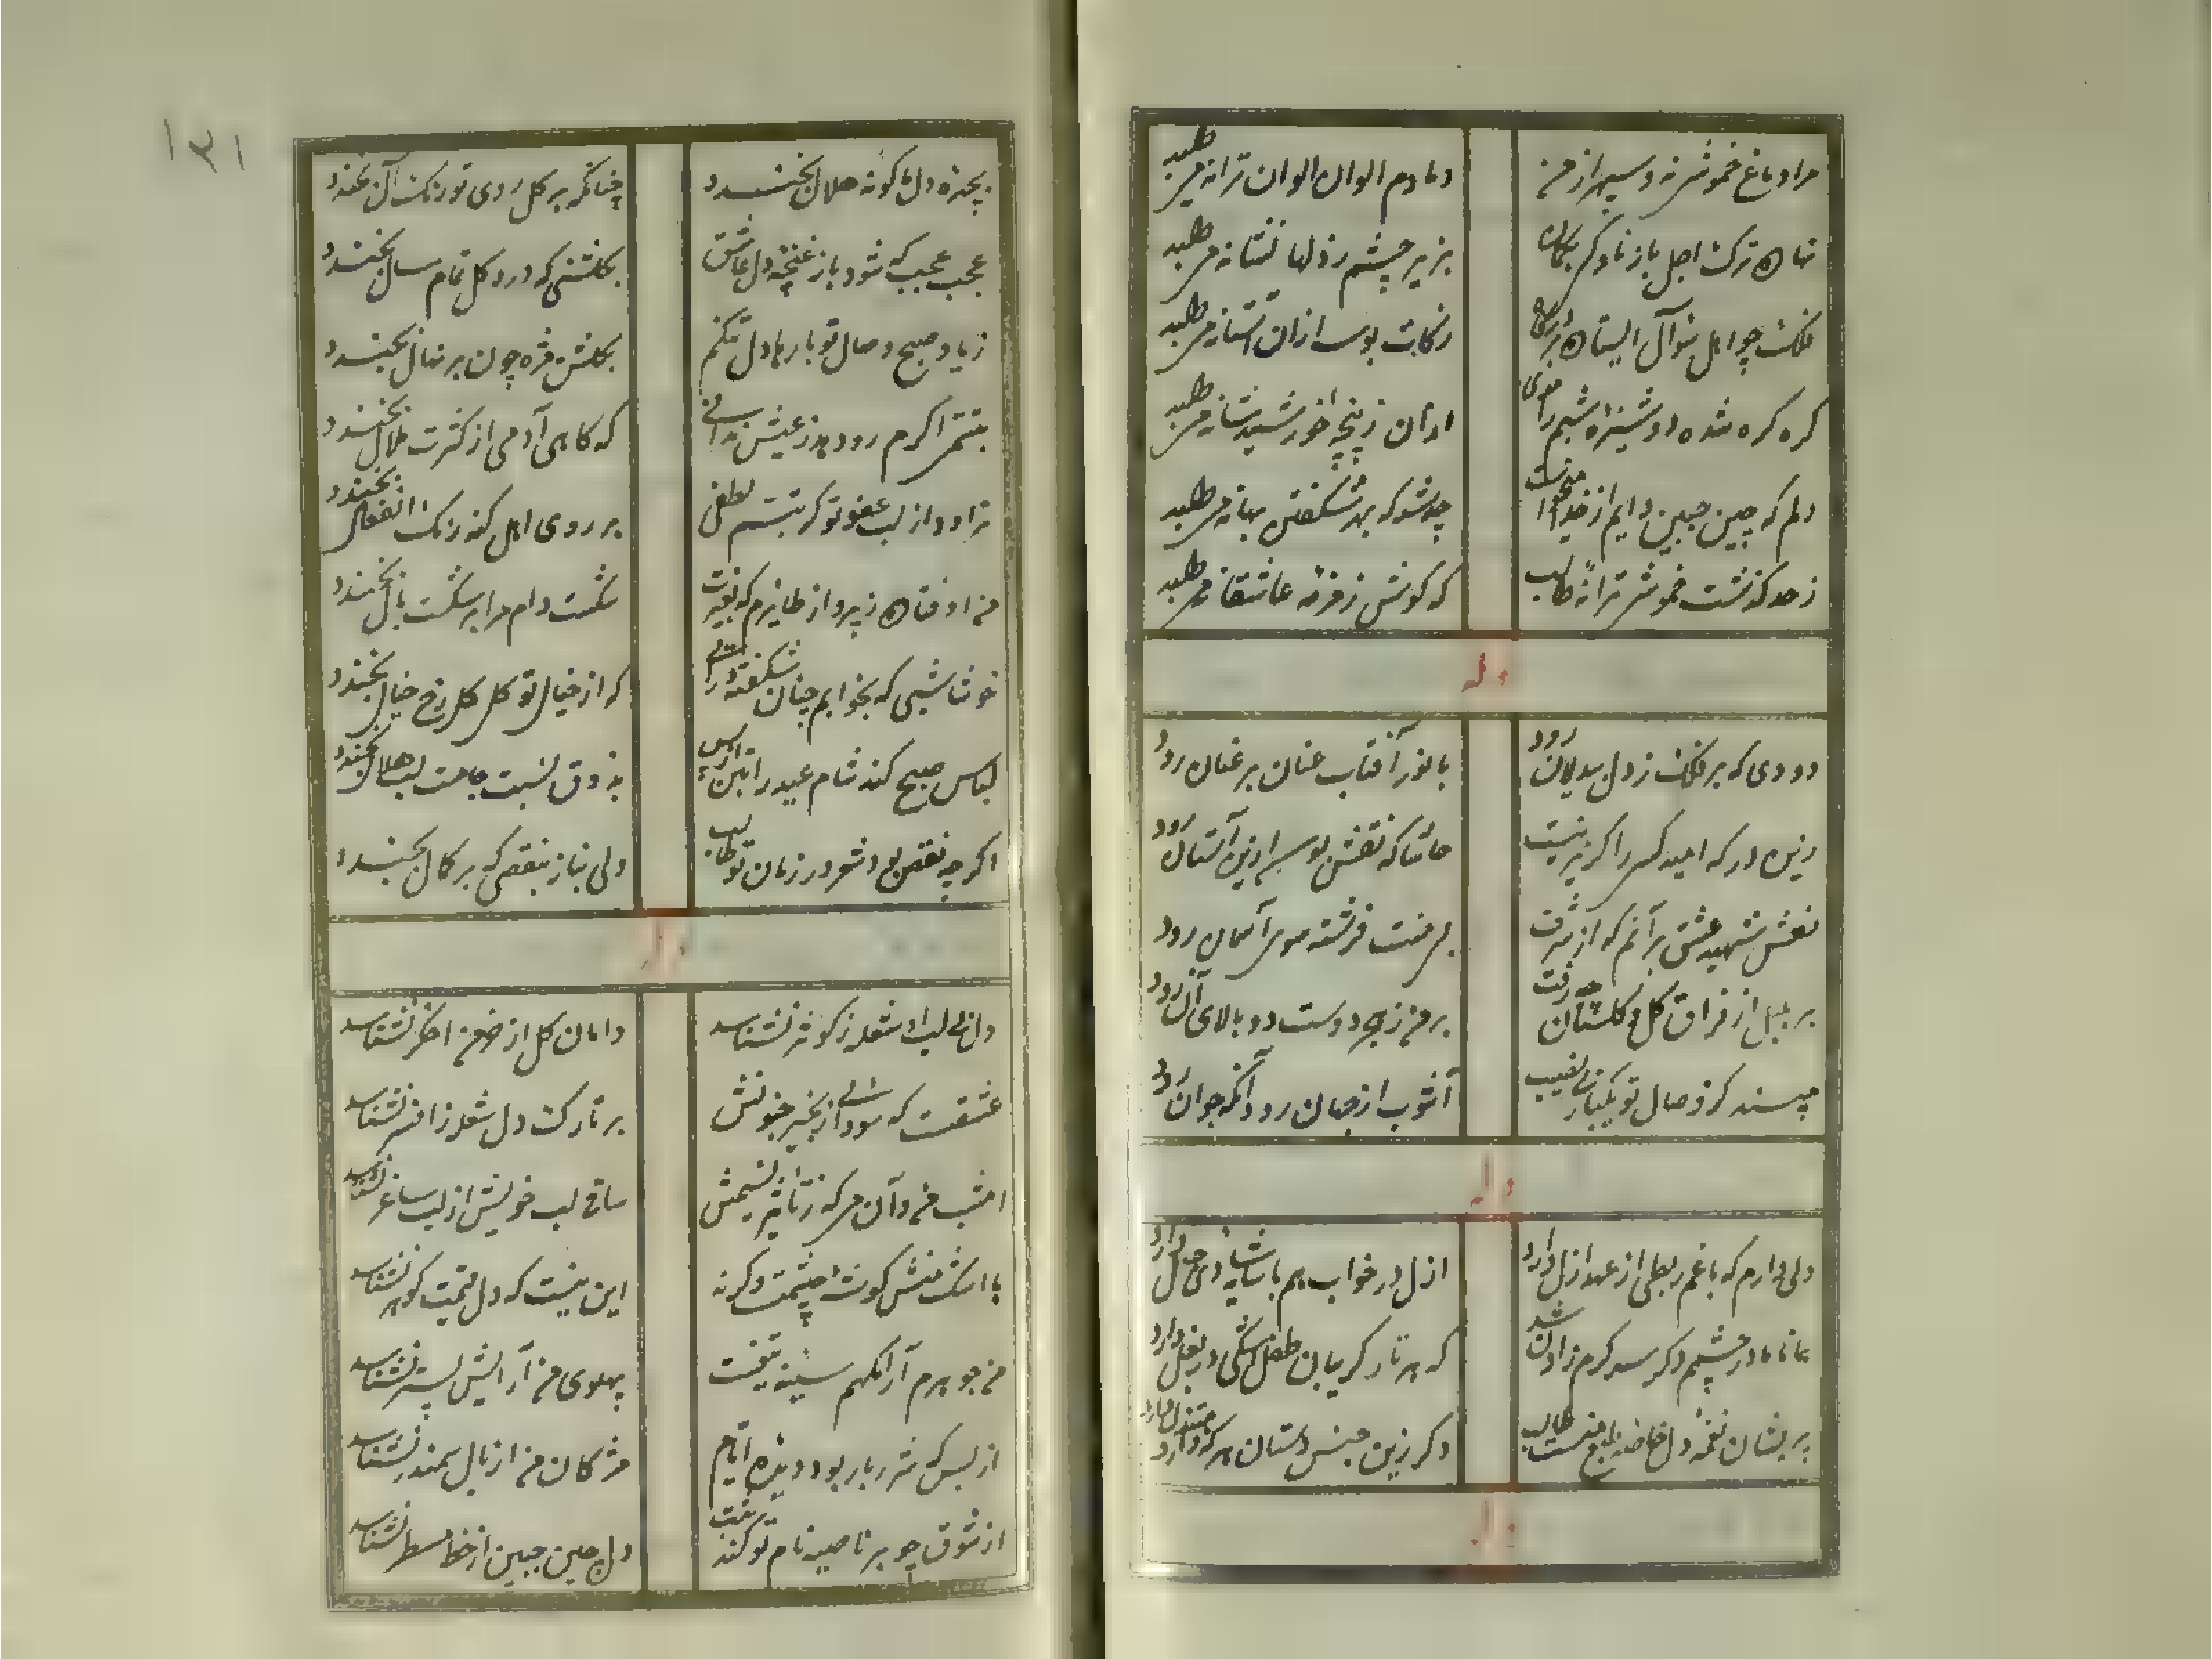 مرا دماغ خموشی نه و سپهر از من
دمادم الوان الوان ترانه می طلبد
بزیر چشم ز دلها نشانه می طلبد
زکات بوسه ازان آستانه می طلبد
گره گره شده
از آن ز پنجه خورشید شانه می طلبد
دلم که چین جبین دایم از خدا میخواست
چه شد که بهر شکفتن بهانه می طلبد
ز حد گذشت خموشی ترانه طالب
که گوش زمزمه عاشقانه می طلبد
وله
دودی که بر فلک ز دل بیدلان رود
با نور آفتاب عنان بر عنان رود
زین در که امید کسی را گزیر نیست
حاشا که نقش بوسه ازین آستان رود
نعش شهید عشق برآنم که از شرف
بی منت فرشته سوی آسمان رود
بر بلبل از فراق گل و گلستان نرفت
بر من ز هجر دوست دو بالای آن رود
مپسند کز وصال تو یکبار بی نصیب
آشوب از جهان رود آنگه جوان رود
وله
دلی دارم که با غم ربطی از عهد ازل دارد
ازل در خواب هم با
شد
که هر تار گریبان طفل اشکی در بغل دارد
پریشان نغمه دل خاصه طبع منست طالب
دگر زین جنس دستان هر که دارد مبتذل دارد
وله
۱۳۱
بچهره دل ما گونه ملال بخندد
چنانکه بر گل روی تو رنگ آل بخندد
عجب عجب که شود باز غنچه دل عاشق
بگلشنی که درو گل تمام سال بخندد
ز یاد صبح وصال تو بارها دل تنگم
بگلشن مژه چون بر نهال بخندد
تبسم اگرم رود هد ز عیش ندانی
که گاهی آدمی از کثرت ملال بخندد
تراود از لب عفو تو گر تبسم لطفی
بر روی اهل گنه رنگ انفعال بخندد
من اوفتاده ز پرواز طایرم که بغیرت
شکست دام مرا بر شکست بال بخندد
خوشا شبی که بخوابم چنان شکفته در آئی
که از خیال تو گل گل رخ خیال بخندد
لباس صبح کند شام عید را بتن ار بس
بذوق نسبت جامت لب هلال بخندد
اگر چه نقص بود شعر در زمان تو طالب
ولی بناز بنقصی که بر کمال بخندد
وله
دل بی لب او شعله ز کوثر نشناسد
دامان گل از دامن اخگر نشناسد
عشقست که سودائی زنجیر جنونش
بر تارک دل شعله ز افسر نشناسد
امشب من و آن می که ز تاثیر نسیمش
ساقی لب خویش از لب ساغر نشناسد
با اشک منش گوشه چشمیست وگرنه
این نیست که دل قیمت گوهر نشناسد
من جوهرم آرامگهم سینه تیغست
پهلوی من آرایش بستر نشناسد
از بس که شرربار بود دیده ایام
مژگان من از بال سمندر نشناسد
از شوق چو بر ناصیه نام تو کند ثبت
دل چین جبین از خط مسطر نشناسد